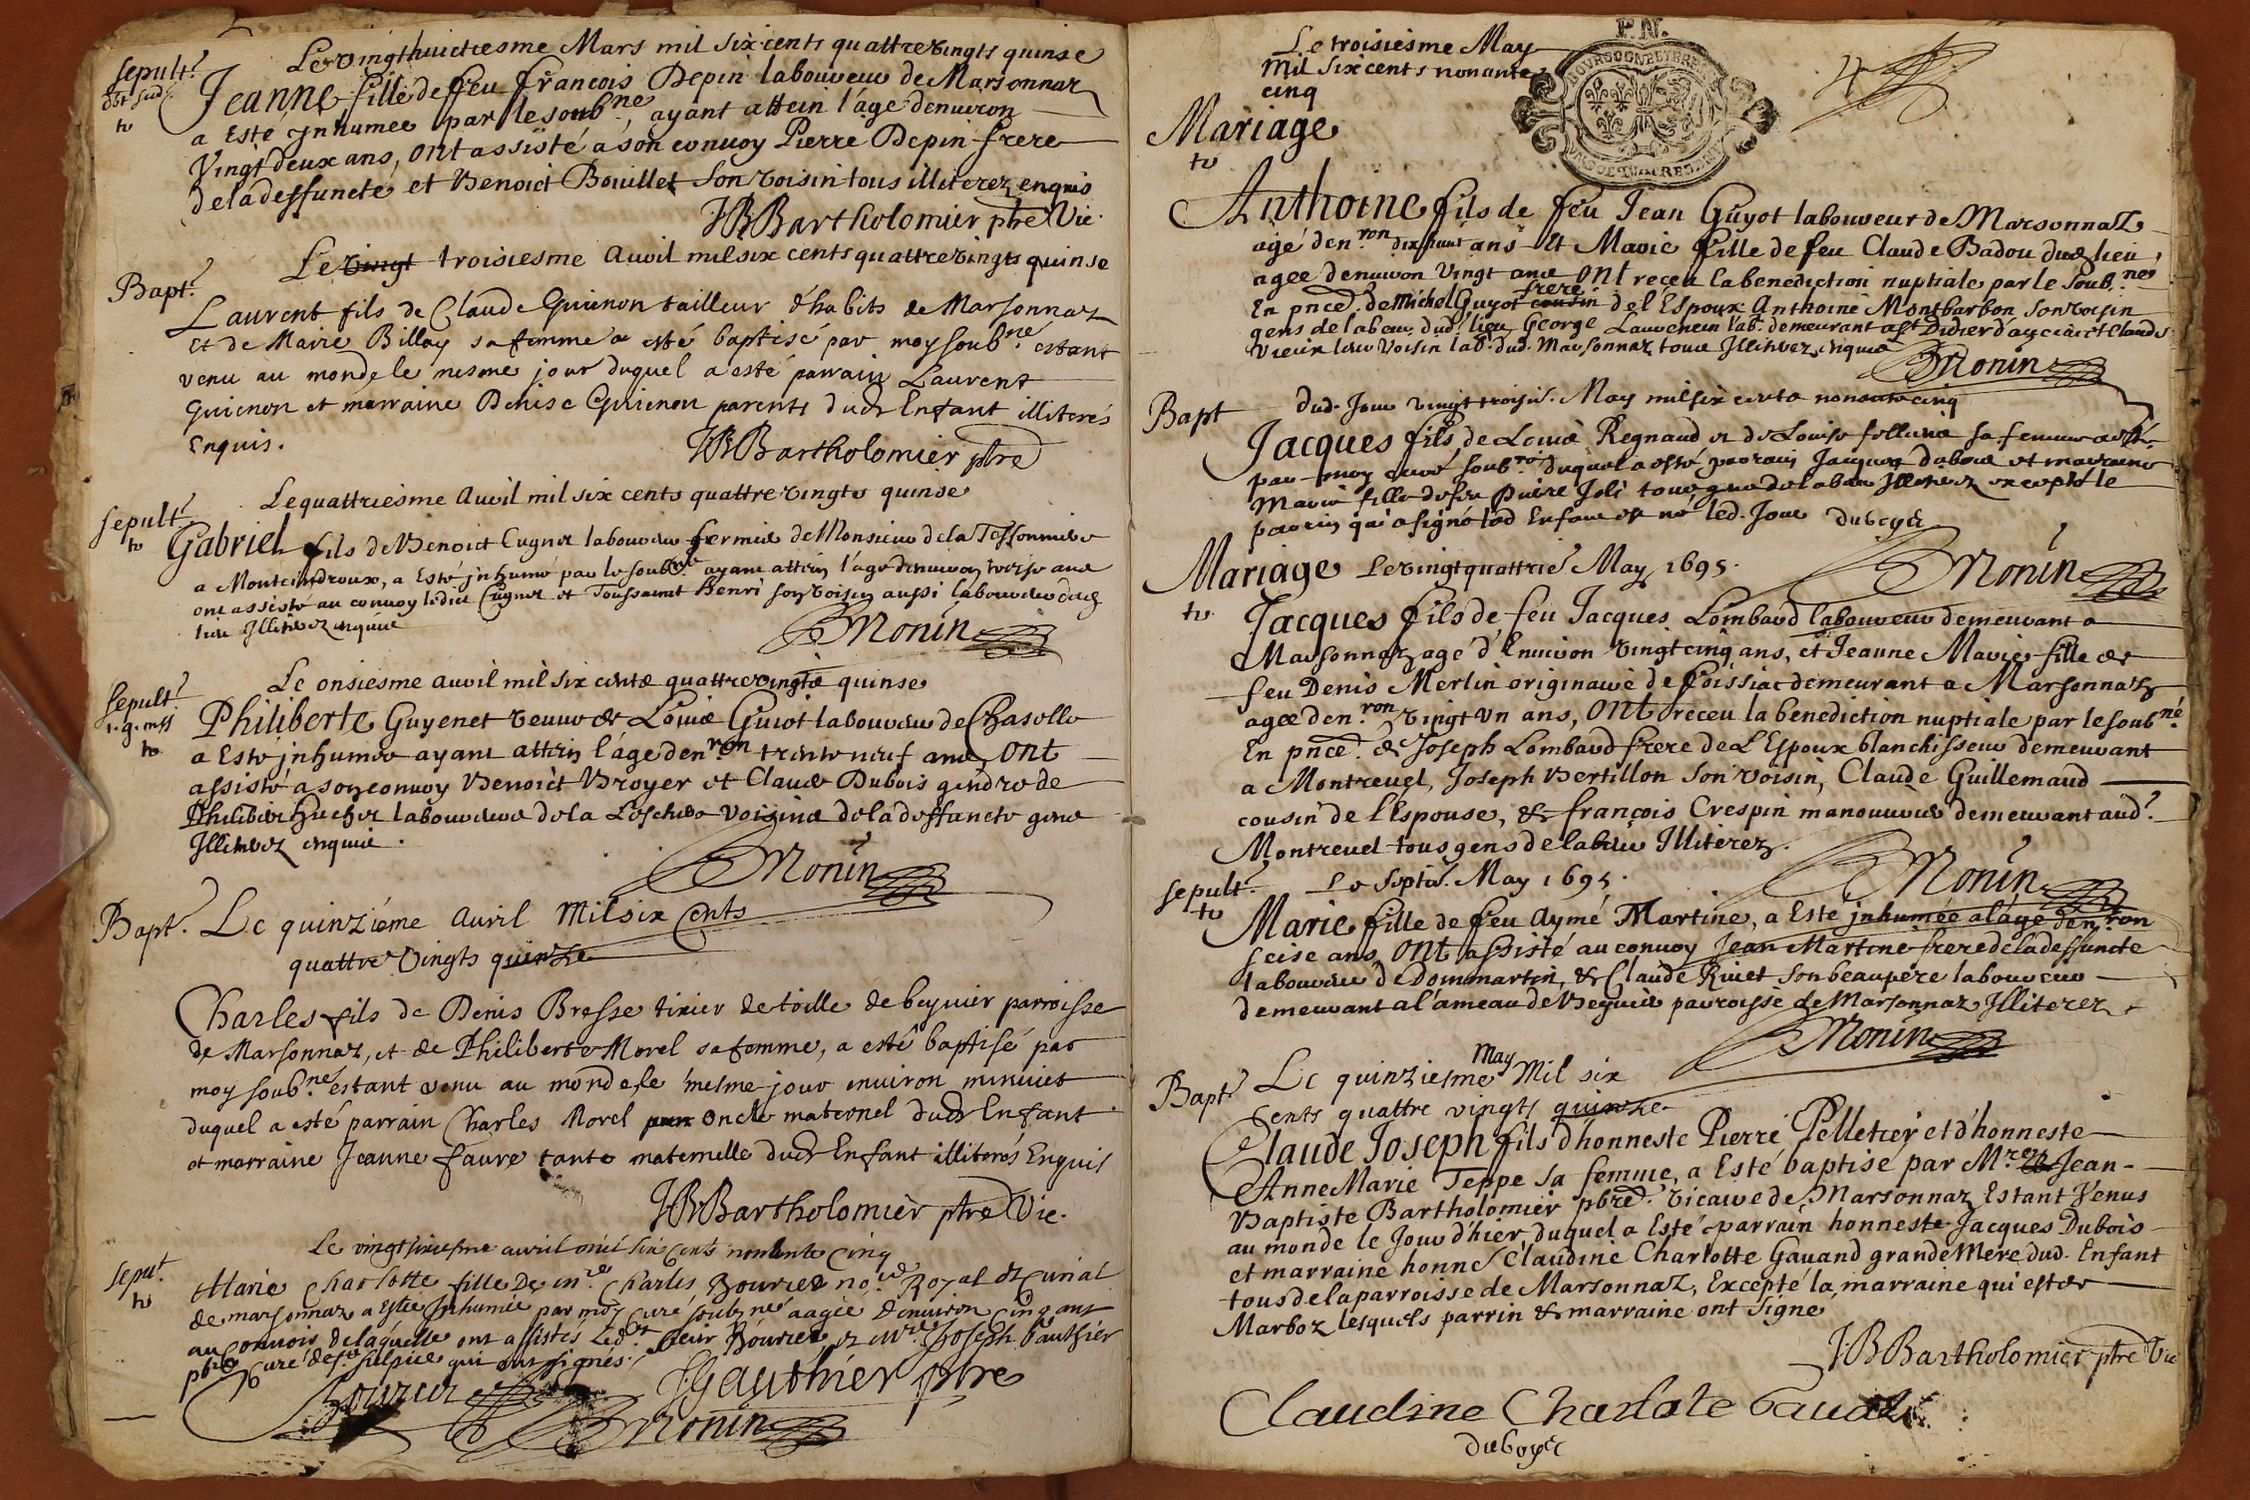 Le vingthuictiesme Mars mil six cents quattrevingts quinse
sepult.e
Jeanne fille de feu francois Depin laboureur de Marsonnaz
a Esté Jnhumée par le soub.ne, ayant attein l'age denuiron
Vingt deux ans, ont assisté a son conuoy Pierre Depin frere
de la deffuncte et Benoict Bouillet son voisin tous illiterez enquis
JBBartholomier ptre Vic.
Le vingt troisiesme Auril mil six cents quattrevingts quinse
Bapt.e
Laurent fils de Claude Guienon tailleur d'habits de Marsonnaz
et de Marie Billay sa femme a esté baptisé par moy soub.ne estant
venu au monde le mesme jour duquel a esté parrain Laurent
Guienon et marraine Denise Guienon parents dud Enfant illiterés
Enquis.
JBBartholomier ptre
Le quattriesme Auril mil six cents quattrevingts quinse
sepult.e
Gabriel fils de Benoict Cugnet laboureur fermier de Monsieur de la Tessonniere
a Montcindroux, a Esté jnhumé par le soub.ne ayant attein l'age denuiron treise ans
ont assisté au conuoy ledict Cugnet et Toussaint Henri son voisin aussi laboureur dud
lieu Jlliterez enquis
Monin
Le onsiesme auril mil six cents quattrevingts quinse
sepult.e
Philiberte Guyenet veuue de Louis Guiot laboureur de Chasolle
a Esté jnhumée ayant attein l'age den.ron trente neuf ans, ont
assisté a son conuoy Benoict Broyer et Claude Dubois gendre de
Philibert Huchet laboureurs de la voisins de la deffuncte gens
Jlliterez enquis.
Monin
Bapt.e Le quinziéme Auril Mil six Cents
quattre Vingts quinze
Charles fils de Denis Bresse tixier de toille de beyuier parroisse
de Marsonnaz, et de Philiberte Morel sa femme, a esté baptisé par
moy soub.ne estant venu au monde le mesme jour enuiron minuict
duquel a esté parrain Charles Morel oncle maternel dud Enfant
et marraine Jeanne faure tante maternelle dud Enfant illiterés Enquis
JBBartholomier ptre Vic.
Le vingtsixiesme auril mil six Cents nonante Cinq
sepul.t
Marie Charlotte fille De m.re Charles Bourier no.re Royal et Curial
de marsonnaz a Esté Jnhumée par moy curé soubz.né aagée d'enuiron Cinq ans
au conuoir de laquelle ont assistés Led.ct sieur Bourier, et m.re Joseph Gauthier
pbre Curé de s.t sulpice qui ont signés.
Bourier JGauthier ptre
Monin
Le troisiesme May
Mil six cents nonante
cinq
Mariage
Anthoine fils de feu Jean Guyot laboureur de Marsonnaz
agé den.ron dixhuit ans Et Marie fille de feu Claude Badou dud lieu,
agee denuiron Vingt ans ont receu la benediction nuptiale par le soub.ne
En pnce de Michel Guyot cousin frere de l'Espoux Anthoine Montbarbon son voisin
gens de labeur dud. lieu George Laurencin lab. demeurant a st Didier d'aussiat et Claude
Vieux leur voisin lab. dud. Marsonnaz tous Jlliterez enquis
Monin
Bapt dud. Jour vingt troisie. May mil six cents nonante cinq
Jacques fils de Louis Regnaud et de Louise sa femme a esté
par moy curé soub.ne duquel a esté parrain Jacques Dubois et marraine
Marie fille de feu Pierre Joli tous gens de labeur Jlliterez excepté le
parrain qui a signé led Enfant est né led. Jour duboys
Monin
Mariage Le vingtquattrie May 1695.
Jacques fils de feu Jacques Lombard laboureur demeurant a
Marsonnaz agé d'Enuiron vingtcinq ans, et Jeanne Marie fille de
feu Denis Merlin originaire de foissiac demeurant a Marsonnaz
agee den.ron vingt Vn ans, ont receu la benediction nuptiale par le soub.né
En pnce de Joseph Lombard frere de L'Espoux blanchisseur demeurant
a Montreuel, Joseph Vertillon son voisin, Claude Guillemaud
cousin de l'Espouse, & françois Crespin manouurier demeurant aud.
Montreuel tous gens de labeur Jlliterez.
Monin
sepult.e Le Septie. May 1695.
Marie fille de feu Aymé Martine, a Esté jnhumée al'age den.ron
seise ans, ont assisté au conuoy Jean Martine frere de la deffuncte
laboureur de Dommartin, & Claude Riuet son beaupere laboureur
demeurant a l'ameau de Beyuiè parroisse de Marsonnaz Jlliterez
Monin
Bapt.e Le quinziesme May Mil six
Cents quattre vingts quinze
Claude Joseph fils d'honneste Pierre Pelletier et d'honneste
Anne Marie Teppe sa femme, a Esté baptisé par M.re Jean-
Baptiste Bartholomier pbre. vicaire de Marsonnaz Estant Venus
au monde le Jour d'hier, duquel a Esté parrain honneste Jacques Dubois
et marraine honne Claudine Charlotte Gauand grande Mere dud. Enfant
tous de la parroisse de Marsonnaz, Excepté la marraine qui est de
Marboz lesquels parrin & marraine ont signé
JBBartholomier ptre Vic
Claudine Charlote Gauand
duboys